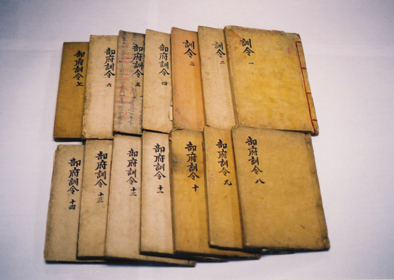 訓令 一
訓令 二
訓令 三
部府訓令 四
部府訓令 五
部府訓令 六
部府訓令 七
部府訓令 八
部府訓令 九
部府訓令 十
部府訓令 十一
部府訓令 十二
部府訓令 十三
部府訓令 十四